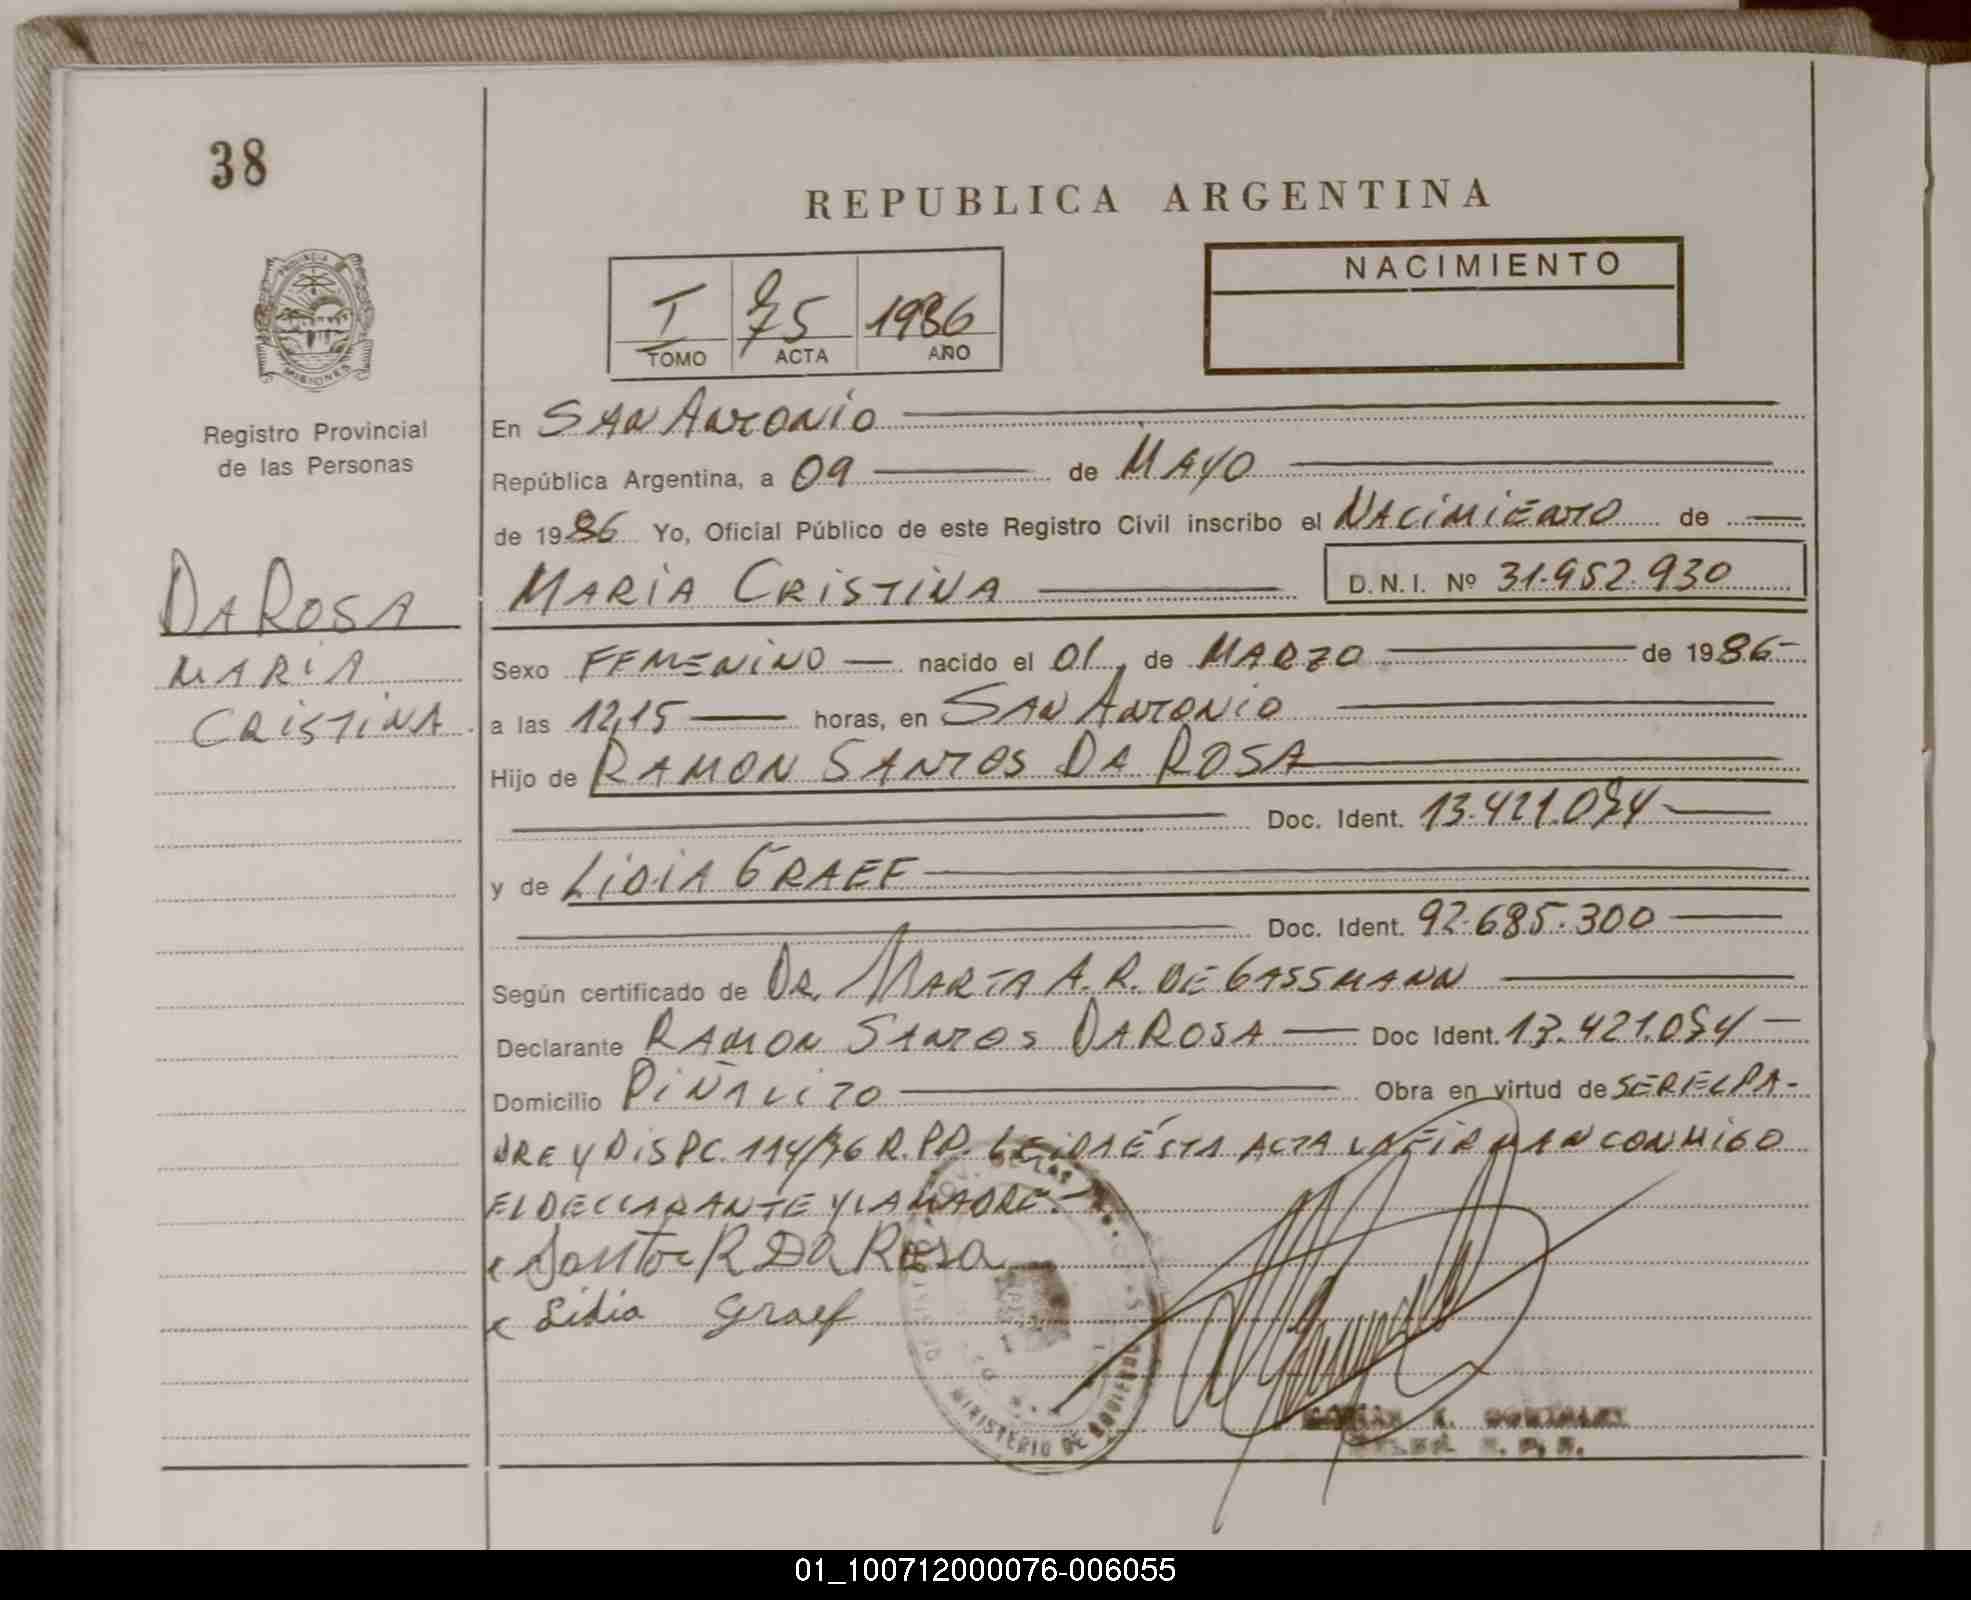 38
REPUBLICA ARGENTINA
PROVINCIA
MISIONES
Registro Provincial
de las Personas
I 75 1986
TOMO ACTA AÑO
NACIMIENTO
En SAN ANTONIO
República Argentina, a 09 de MAYO
de 1986 Yo, Oficial Público de este Registro Civil inscribo el NACIMIENTO de
MARIA CRISTINA D.N.I. Nº 31.952.930
DA ROSA
MARIA
CRISTINA
Sexo FEMENINO nacido el 01 de MARZO de 1986
a las 12,15 horas, en SAN ANTONIO
Hijo de RAMON SANTOS DA ROSA
Doc. Ident.
y de LIDIA GRAEF
Doc. Ident. 92.685.300
Según certificado de DR. MARTA A. R. DE GASSMANN
Declarante RAMON SANTOS DA ROSA Doc Ident.
Domicilio PIÑALITO Obra en virtud de SER EL PA-
DRE Y DISPC. 114/76 R.P.P. LEIDA ÉSTA ACTA LA FIRMAN CONMIGO
EL DECLARANTE Y LA MADRE.-
Santos R Da Rosa
Lidia Graef
MINISTERIO DE
01_100712000076-006055